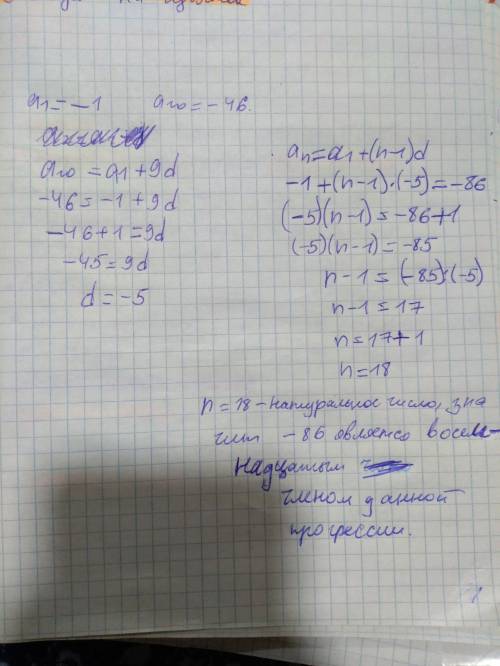 a₁ = −1    a₁₀ = −46.
a₁₀ = a₁ + 9d
−46 = −1 + 9d
−46 + 1 = 9d
−45 = 9d
d = −5
aₙ = a₁ + (n−1)d
−1 + (n−1)·(−5) = −86
(−5)(n−1) = −86 + 1
(−5)(n−1) = −85
n−1 = (−85):(−5)
n−1 = 17
n = 17 + 1
n = 18
n = 18 – натуральное число, зна
чит −86 является восем-
надцатым
членом данной
прогрессии.